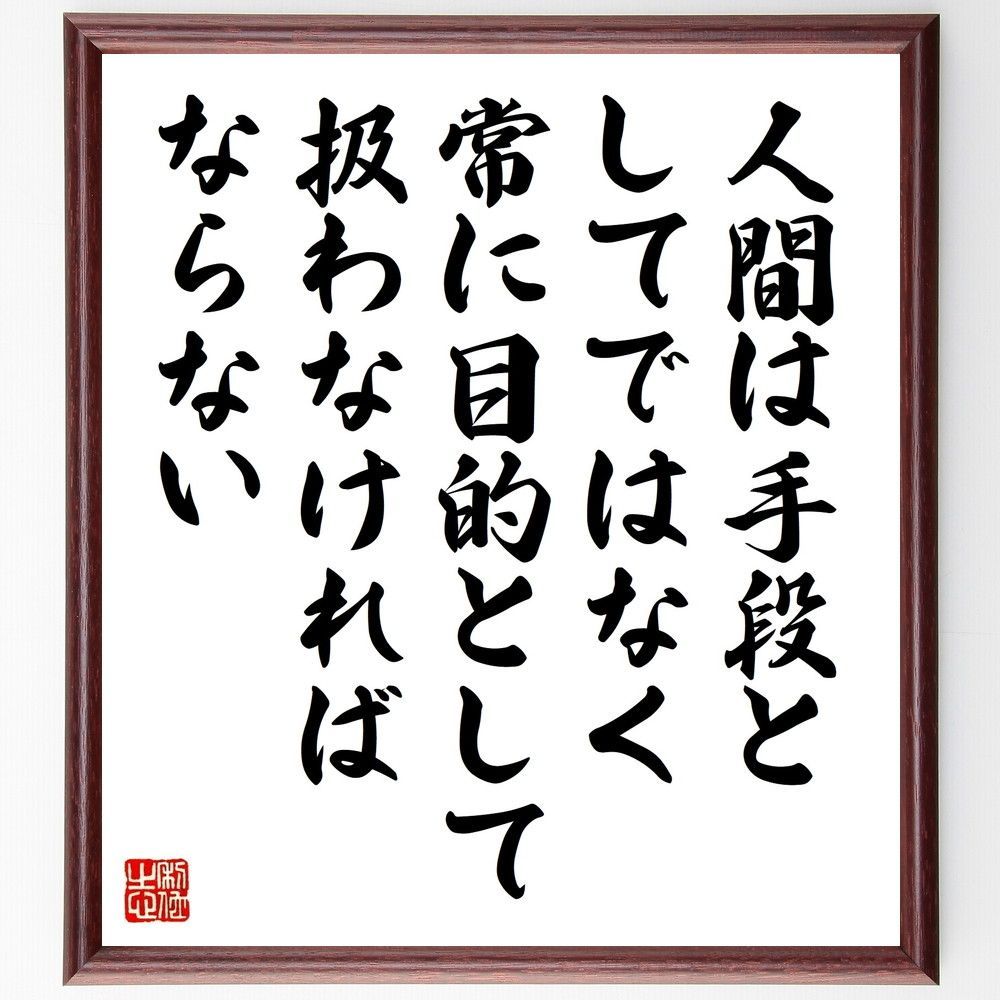 人間は手段と
してではなく
常に目的として
扱わなければ
ならない